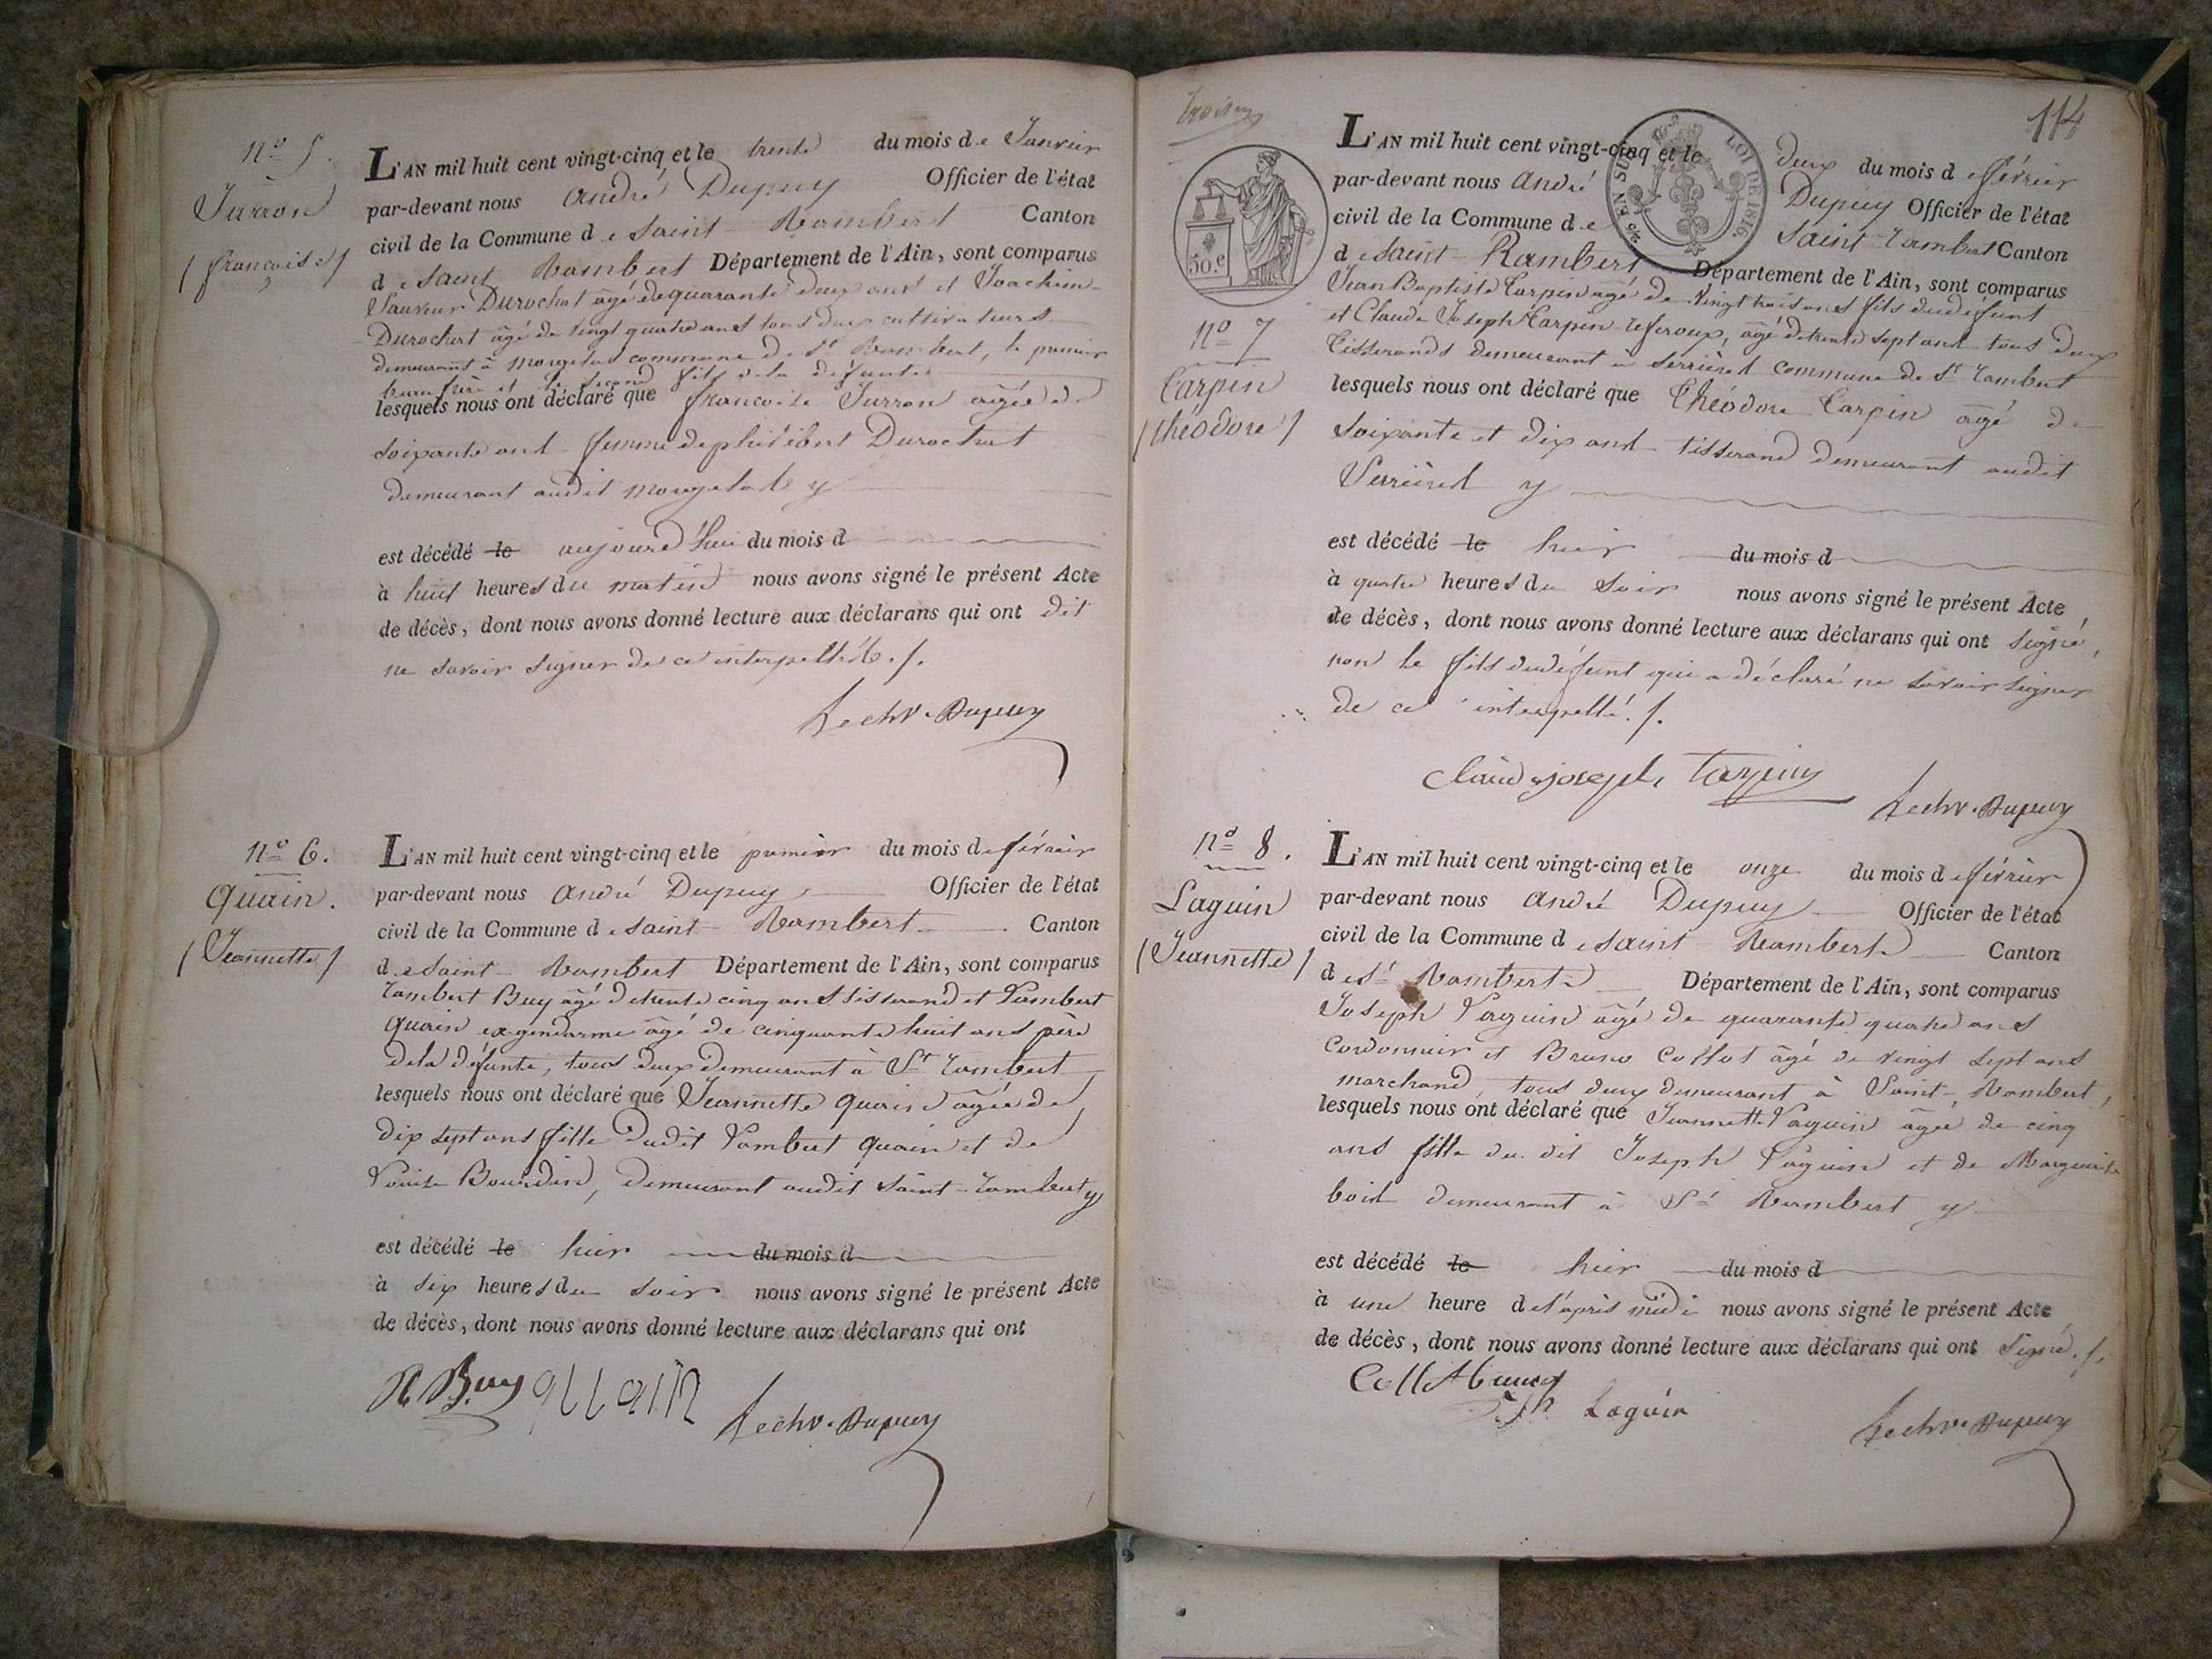 nº 5.
Jurron
(françoise)
L'AN mil huit cent vingt-cinq et le trente du mois de Janvier
par-devant nous André Dupuy Officier de l'état
civil de la Commune de Saint Rambert Canton
de Saint Rambert Département de l'Ain, sont comparus
Sauveur Durochat âgé de quarante deux ans et Joachim
Durochat âgé de vingt quatre ans tous deux cultivateurs
demeurant à commune de St Rambert, le premier
beau frère et le second fils de la défunte
lesquels nous ont déclaré que françoise Jurron âgée de
soixante ans femme de philibert Durochat
demeurant audit y
est décédé le aujourd'hui du mois d
à huit heures du matin nous avons signé le présent Acte
de décès, dont nous avons donné lecture aux déclarans qui ont dit
ne savoir signer de ce interpellés ./.
Dupuy
nº 6.
Quain.
(Jeannette)
L'AN mil huit cent vingt-cinq et le premier du mois de février
par-devant nous André Dupuy Officier de l'état
civil de la Commune de Saint Rambert Canton
de Saint Rambert Département de l'Ain, sont comparus
Rambert Buy âgé de trente cinq ans tisserand et Rambert
Quain ex gendarme âgé de cinquante huit ans père
de la défunte, tous deux demeurant à St Rambert
lesquels nous ont déclaré que Jeannette Quain âgée de
dix sept ans fille dudit Rambert Quain et de
Bourdin, demeurant audit Saint-Rambert y
est décédé le hier du mois d
à six heures du soir nous avons signé le présent Acte
de décès, dont nous avons donné lecture aux déclarans qui ont
R Buy qUain Dupuy
114
L'AN mil huit cent vingt-cinq et le deux du mois de février
par-devant nous André Dupuy Officier de l'état
civil de la Commune de Saint Rambert Canton
de Saint Rambert Département de l'Ain, sont comparus
EN SUS LOI DE 1816.
50.c
nº 7
Carpin
(théodore)
Jean Baptiste Carpin âgé de vingt trois ans fils du défunt
et Claude Joseph Carpin âgé de trente sept ans tous deux
tisserands demeurant à Serrières commune de St Rambert
lesquels nous ont déclaré que Théodore Carpin âgé de
soixante et dix ans tisserand demeurant audit
Serrières y
est décédé le hier du mois d
à quatre heures du soir nous avons signé le présent Acte
de décès, dont nous avons donné lecture aux déclarans qui ont signé,
non le fils du défunt qui a déclaré ne savoir signer
de ce interpellé ./.
Claude joseph Carpin
Dupuy
nº 8.
Laguin
(Jeannette)
L'AN mil huit cent vingt-cinq et le onze du mois de février
par-devant nous André Dupuy Officier de l'état
civil de la Commune de Saint Rambert Canton
de St Rambert Département de l'Ain, sont comparus
Joseph Laguin âgé de quarante quatre ans
Cordonnier et Bruno Collot âgé de vingt sept ans
marchand tous deux demeurant à Saint-Rambert,
lesquels nous ont déclaré que Jeannette Laguin âgée de cinq
ans fille du dit Joseph Laguin et de Marguerite
bois demeurant à St Rambert y
est décédé le hier du mois d
à une heure de l'après midi nous avons signé le présent Acte
de décès, dont nous avons donné lecture aux déclarans qui ont signé ./.
Laguin
Dupuy